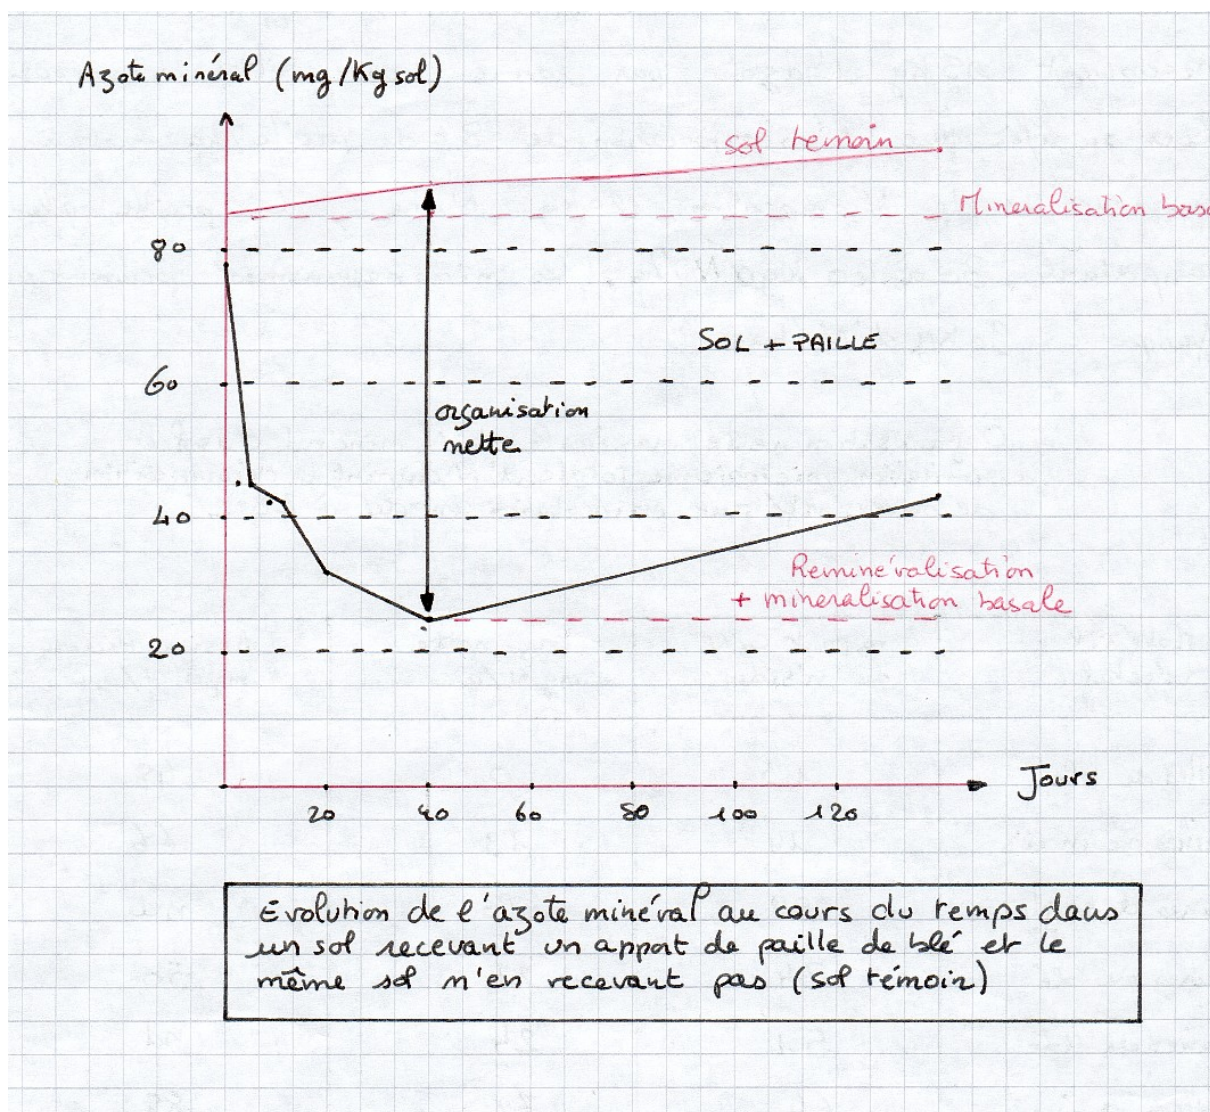 Azote minéral (mg/Kg sol)
sol temoin
Mineralisation bas
80
SOL + PAILLE
60
organisation
nette
40
Reminéralisation
+ mineralisation basale
20
Jours
20 40 60 80 100 120
Evolution de l'azote minéral au cours du temps dans
un sol recevant un apport de paille de blé et le
même sol n'en recevant pas (sol témoin)